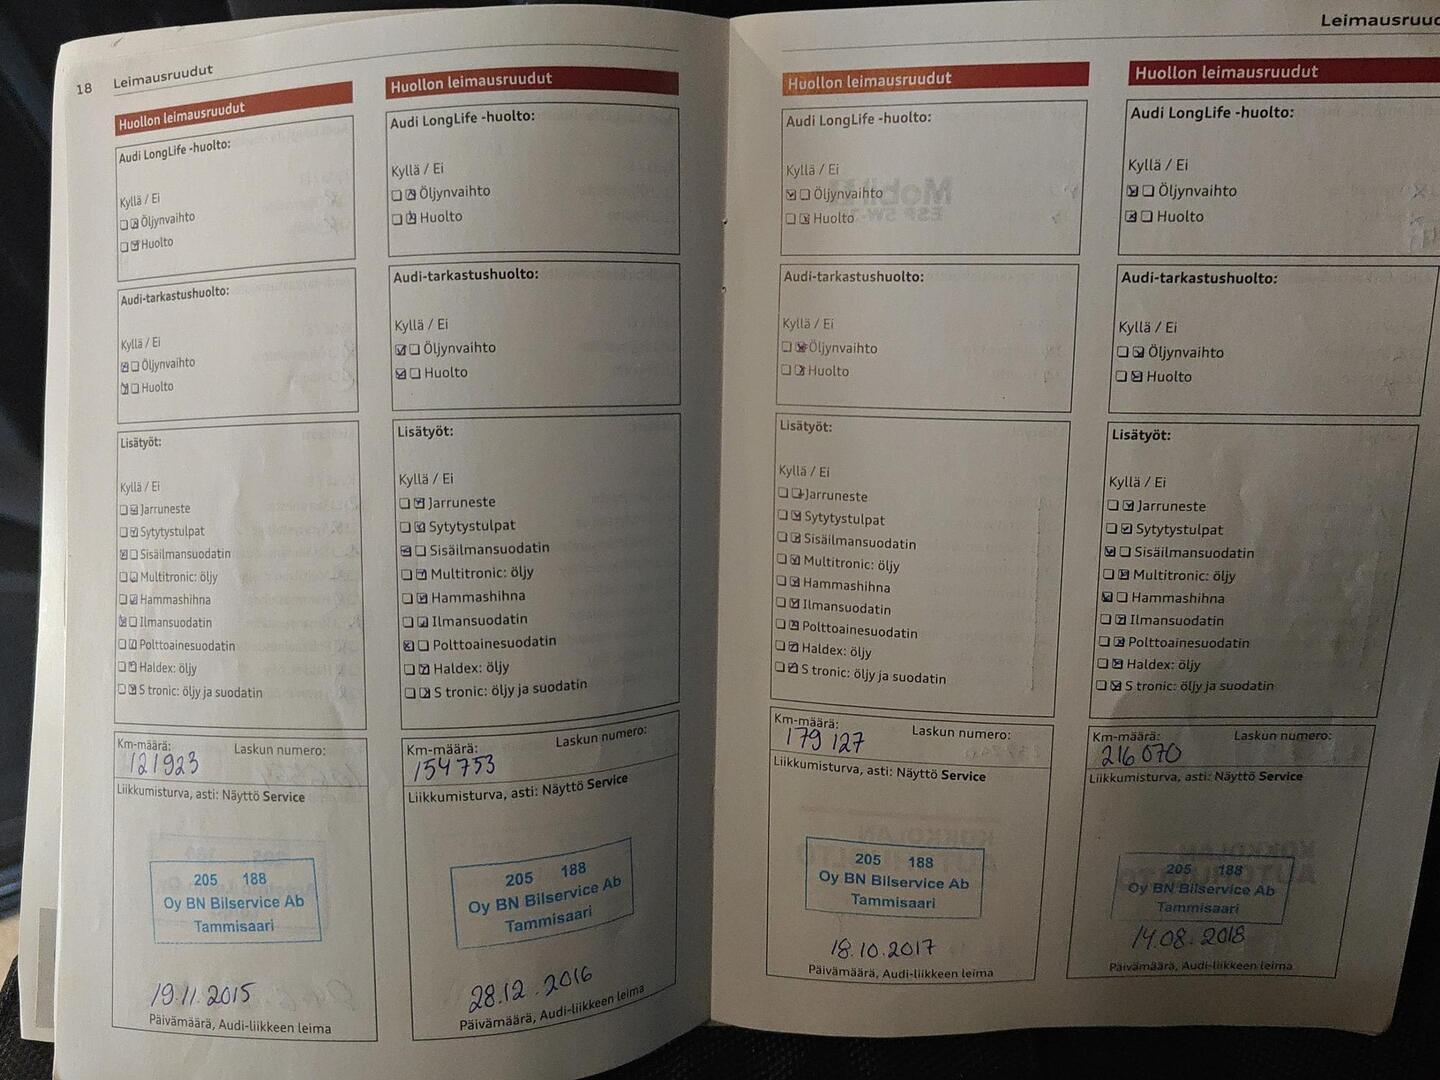 18
Leimausruudut
Huollon leimausruudut
Audi LongLife -huolto:
Kyllä / Ei
Öljynvaihto
Huolto
Audi-tarkastushuolto:
Kyllä / Ei
Öljynvaihto
Huolto
Lisätyöt:
Kyllä / Ei
Jarruneste
Sytytystulpat
Sisäilmansuodatin
Multitronic: öljy
Hammashihna
Ilmansuodatin
Polttoainesuodatin
Haldex: öljy
S tronic: öljy ja suodatin
Km-määrä: Laskun numero:
121923
Liikkumisturva, asti: Näyttö Service
205 188
Oy BN Bilservice Ab
Tammisaari
19.11.2015
Päivämäärä, Audi-liikkeen leima
Huollon leimausruudut
Audi LongLife -huolto:
Kyllä / Ei
Öljynvaihto
Huolto
Audi-tarkastushuolto:
Kyllä / Ei
Öljynvaihto
Huolto
Lisätyöt:
Kyllä / Ei
Jarruneste
Sytytystulpat
Sisäilmansuodatin
Multitronic: öljy
Hammashihna
Ilmansuodatin
Polttoainesuodatin
Haldex: öljy
S tronic: öljy ja suodatin
Km-määrä: Laskun numero:
154 753
Liikkumisturva, asti: Näyttö Service
205 188
Oy BN Bilservice Ab
Tammisaari
28.12.2016
Päivämäärä, Audi-liikkeen leima
Huollon leimausruudut
Audi LongLife -huolto:
Kyllä / Ei
Öljynvaihto
Huolto
Audi-tarkastushuolto:
Kyllä / Ei
Öljynvaihto
Huolto
Lisätyöt:
Kyllä / Ei
Jarruneste
Sytytystulpat
Sisäilmansuodatin
Multitronic: öljy
Hammashihna
Ilmansuodatin
Polttoainesuodatin
Haldex: öljy
S tronic: öljy ja suodatin
Km-määrä: Laskun numero:
179 127
Liikkumisturva, asti: Näyttö Service
205 188
Oy BN Bilservice Ab
Tammisaari
18.10.2017
Päivämäärä, Audi-liikkeen leima
Huollon leimausruudut
Audi LongLife -huolto:
Kyllä / Ei
Öljynvaihto
Huolto
Audi-tarkastushuolto:
Kyllä / Ei
Öljynvaihto
Huolto
Lisätyöt:
Kyllä / Ei
Jarruneste
Sytytystulpat
Sisäilmansuodatin
Multitronic: öljy
Hammashihna
Ilmansuodatin
Polttoainesuodatin
Haldex: öljy
S tronic: öljy ja suodatin
Km-määrä: Laskun numero:
216 070
Liikkumisturva, asti: Näyttö Service
205 188
Oy BN Bilservice Ab
Tammisaari
14.08.2018
Päivämäärä, Audi-liikkeen leima